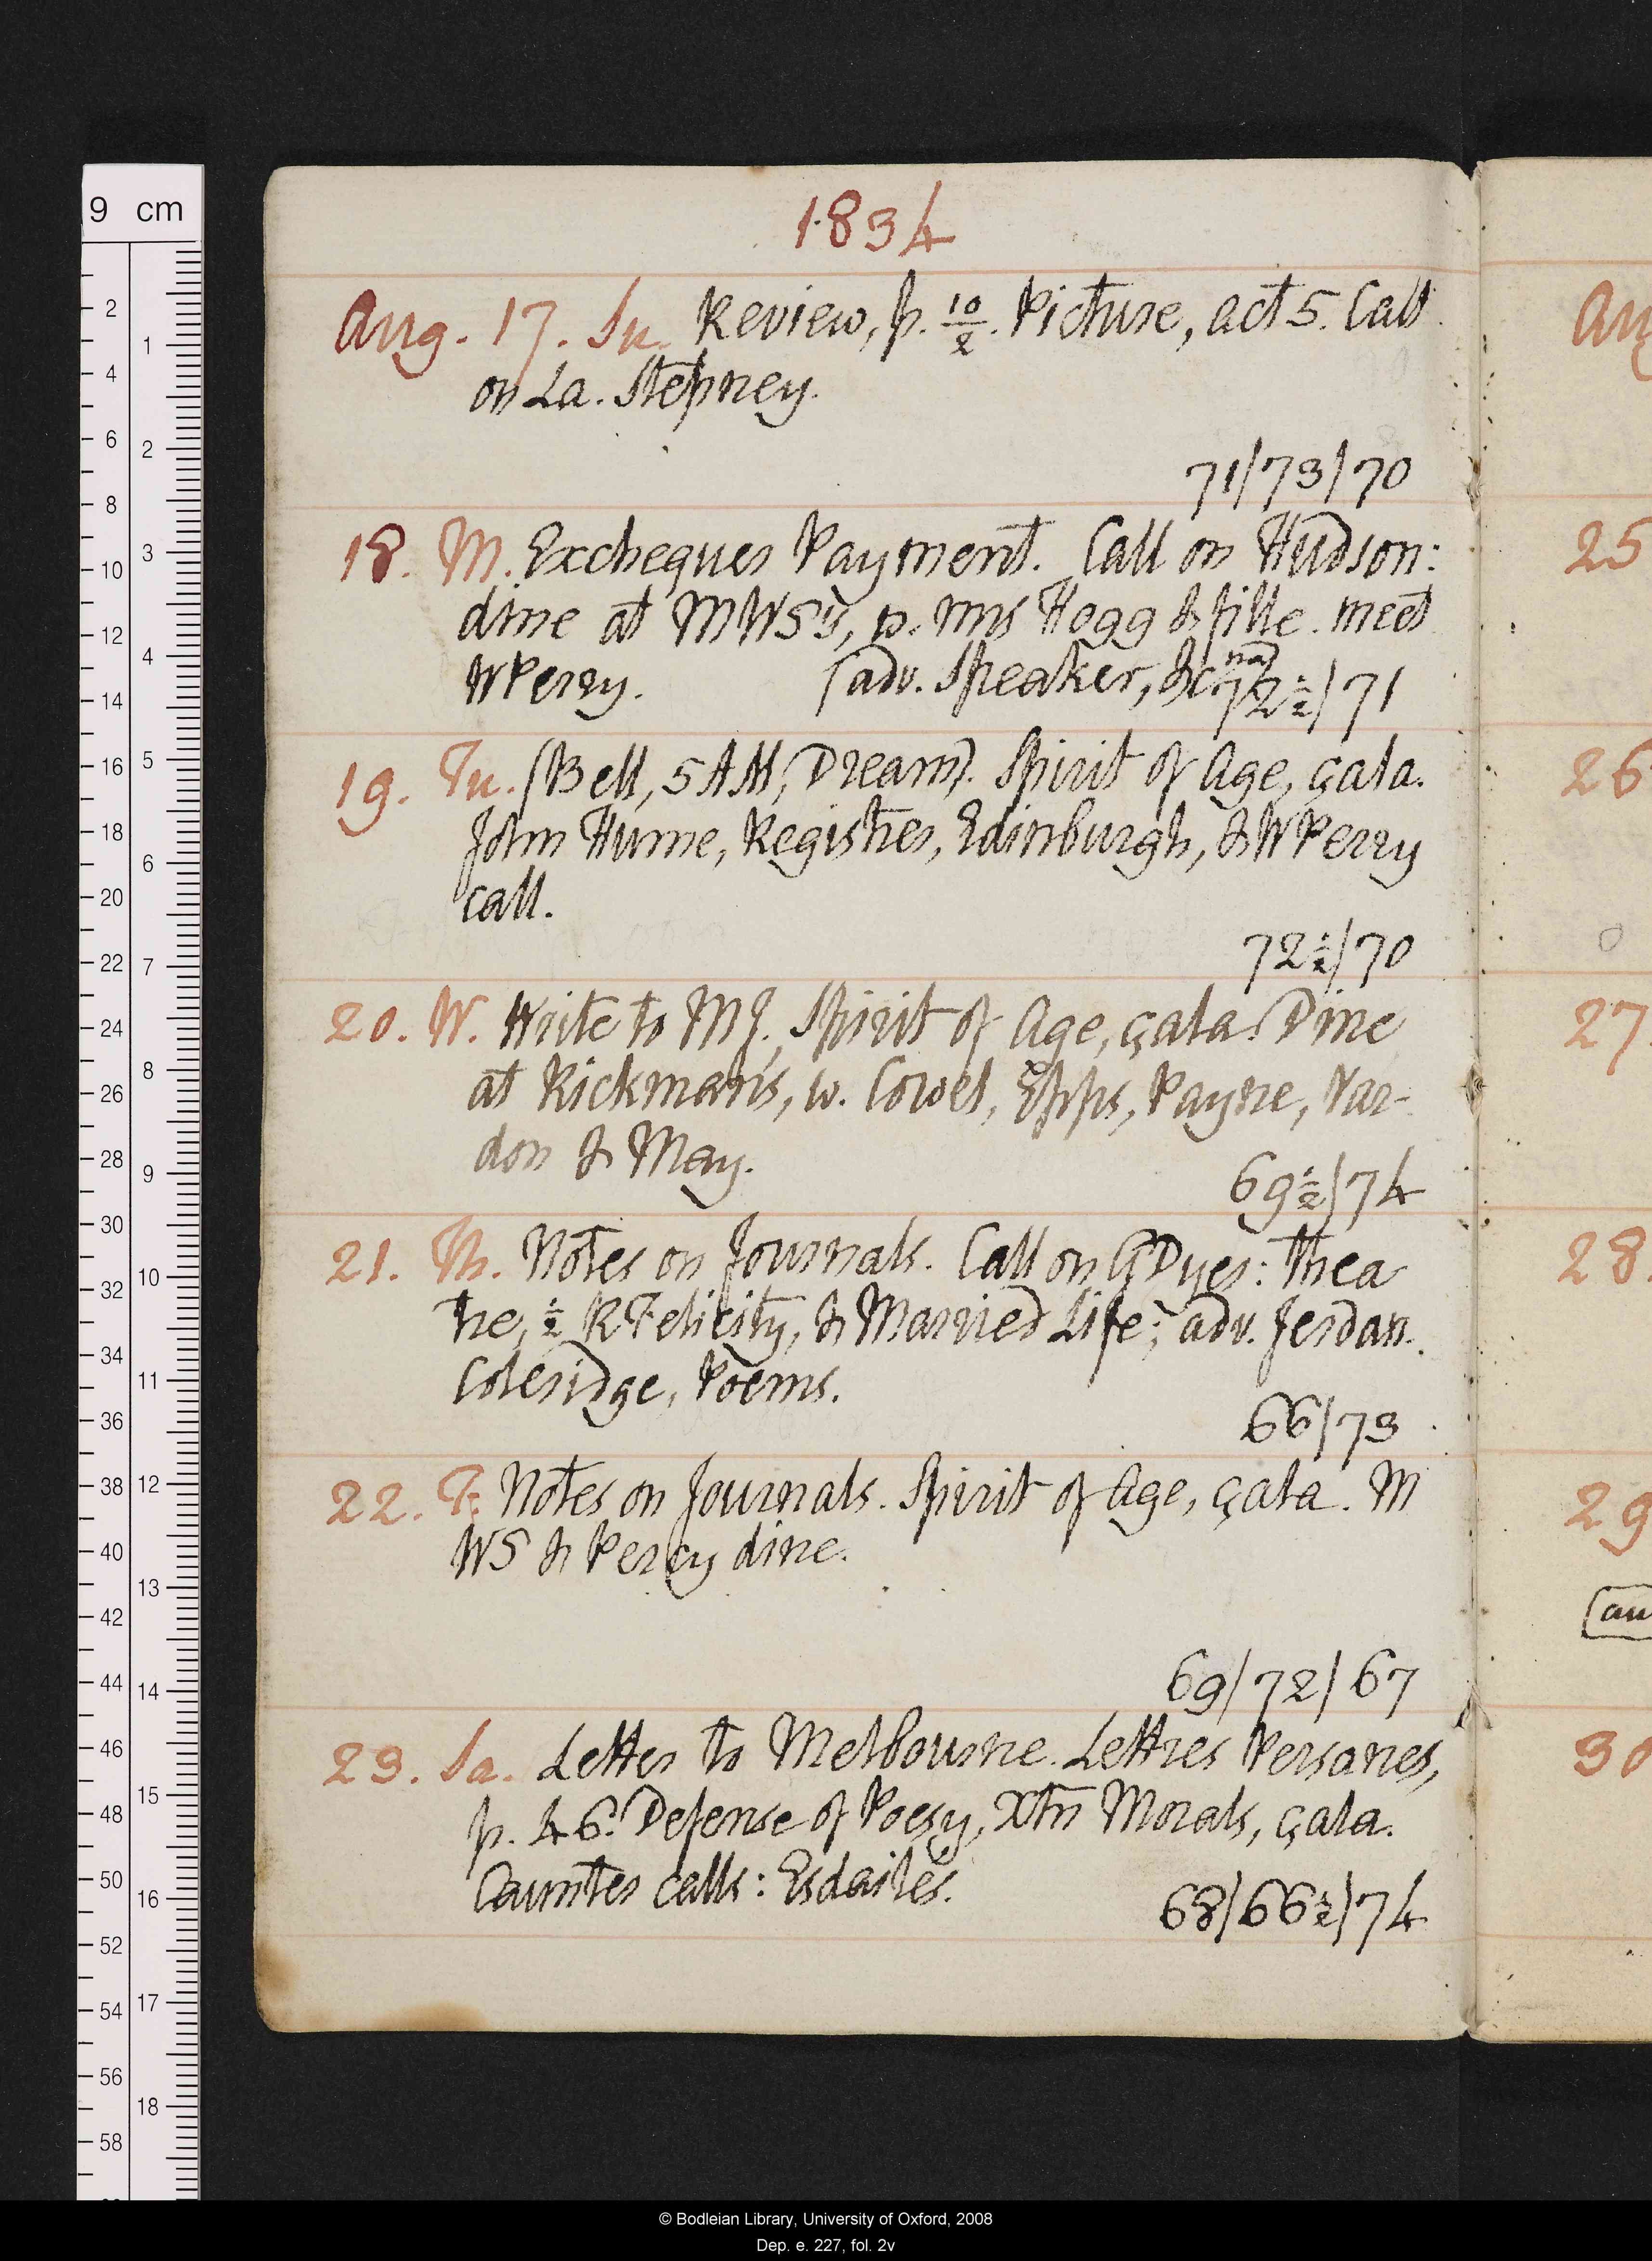 1834
Aug. 17. Su. Review, p. 10/2. Picture, act 5. Call
on La. Stepney.
71/73/70
18. M. Exchequer Payment. Call on Hudson:
dine at MWS's, w. mrs Hogg & fille. meet
WPerry. (adv. Speaker, &c na)
72½/71
19. Tu. (Bell, 5 AM, Dream). Spirit of Age, çala.
John Hume, Register, Edinburgh, & WPerry
call.
72½/70
20. W. Write to MJ. Spirit of Age, çala. Dine
at Rickman's, w. Cowel, Epps, Payne, Var-
don & May.
69½/74
21. Th. Notes on Journals. Call on GDyer: Thea-
tre, ½ R Felicity, & Married Life; adv. Jerdan.
Coleridge, Poems.
66/73
22. F. Notes on Journals. Spirit of Age, çala. M
WS & Percy dine.
69/72/67
23. Sa. Letter to Melbourne. Lettres Persanes,
p. 46. Defense of Poesy, Xtn Morals, çala.
Caunter calls: Esdailes.
68/66½/74
Au
25
26
27.
28.
29
(au
30
9 cm
2
4
6
8
10
12
14
16
18
20
22
24
26
28
30
32
34
36
38
40
42
44
46
48
50
52
54
56
58
1
2
3
4
5
6
7
8
9
10
11
12
13
14
15
16
17
18
© Bodleian Library, University of Oxford, 2008
Dep. e. 227, fol. 2v